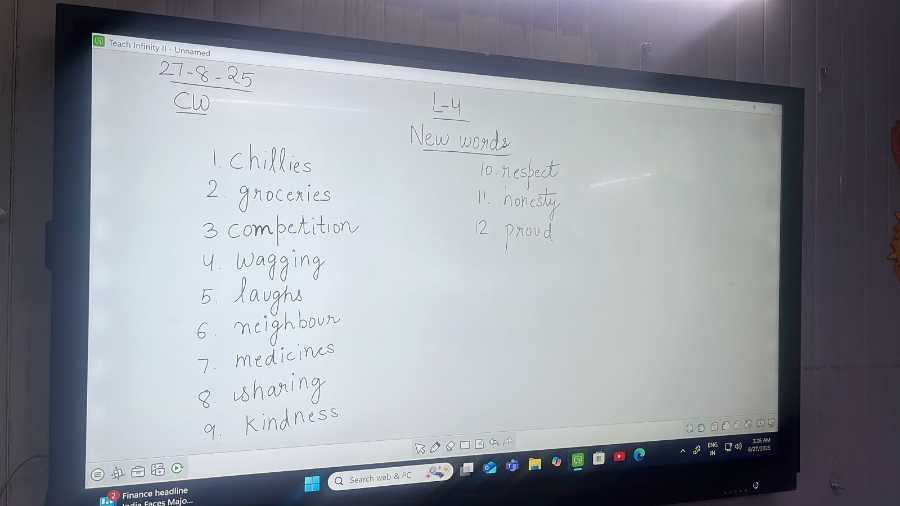 Teach Infinity II - Unnamed
27-8-25
CW
L-4
New words
1. Chillies
2. groceries
3 competition
4. wagging
5. laughs
6. neighbour
7. medicines
8. sharing
9. kindness
10. respect
11. honesty
12 proud
Search web & PC
ENG
IN
3:26 AM
8/27/2025
2
Finance headline
India Faces Majo...